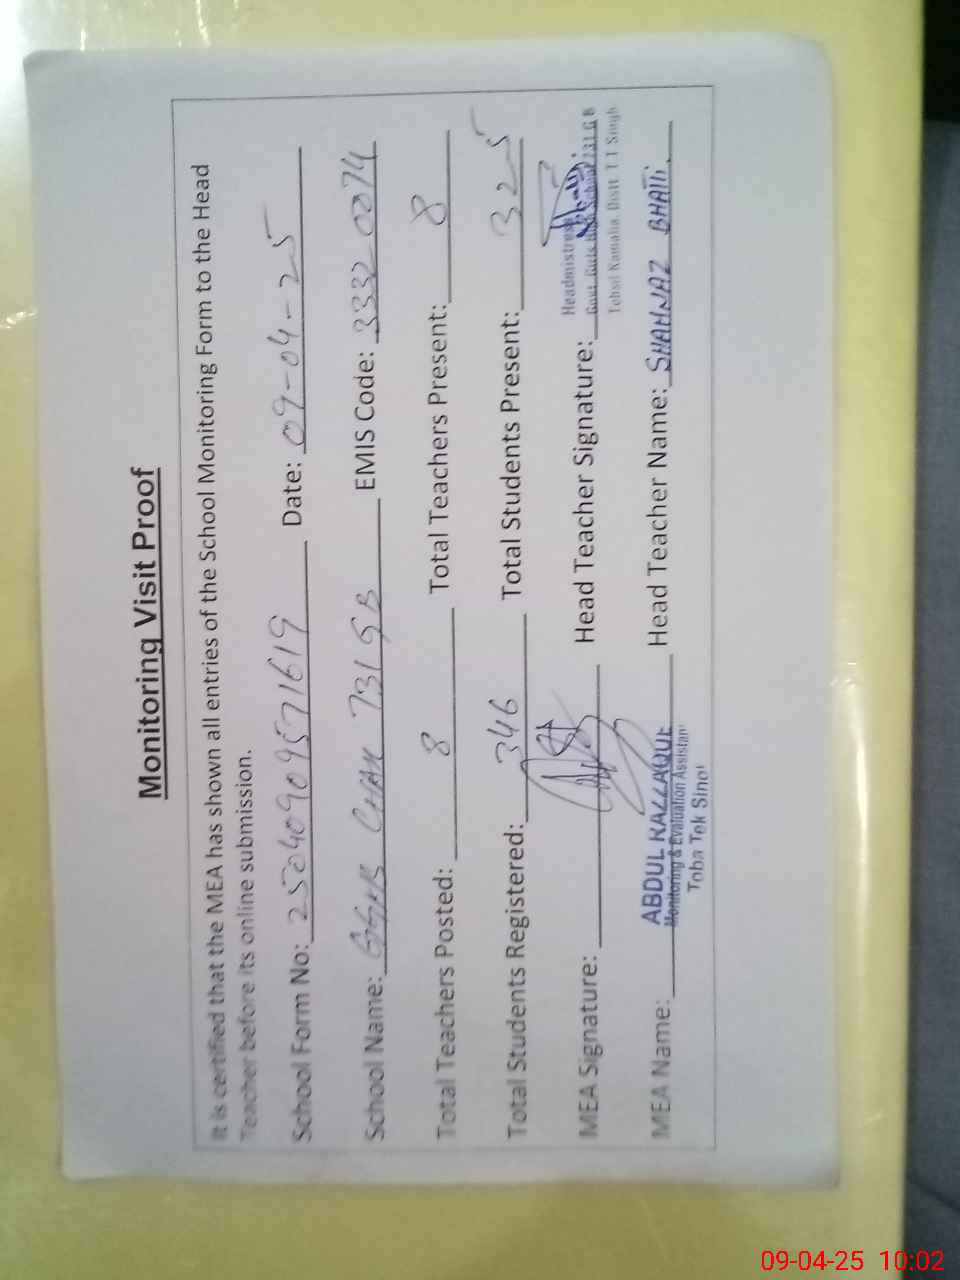 Monitoring Visit Proof
It is certified that the MEA has shown all entries of the School Monitoring Form to the Head
Teacher before its online submission.
School Form No: 25040909571619 Date: 09-04-25
School Name: GGHS CHAK 731 GB EMIS Code: 33320074
Total Teachers Posted: 8 Total Teachers Present: 8
Total Students Registered: 346 Total Students Present: 325
MEA Signature: Head Teacher Signature:
Headmistress
Govt. Girls High School 731 G B
Tehsil Kamalia. Distt. T T Singh
MEA Name: ABDUL RAZZAQUE Head Teacher Name: SHAHNAZ BHATTI.
Monitoring & Evaluation Assistan
Toba Tek Sing
09-04-25 10:02